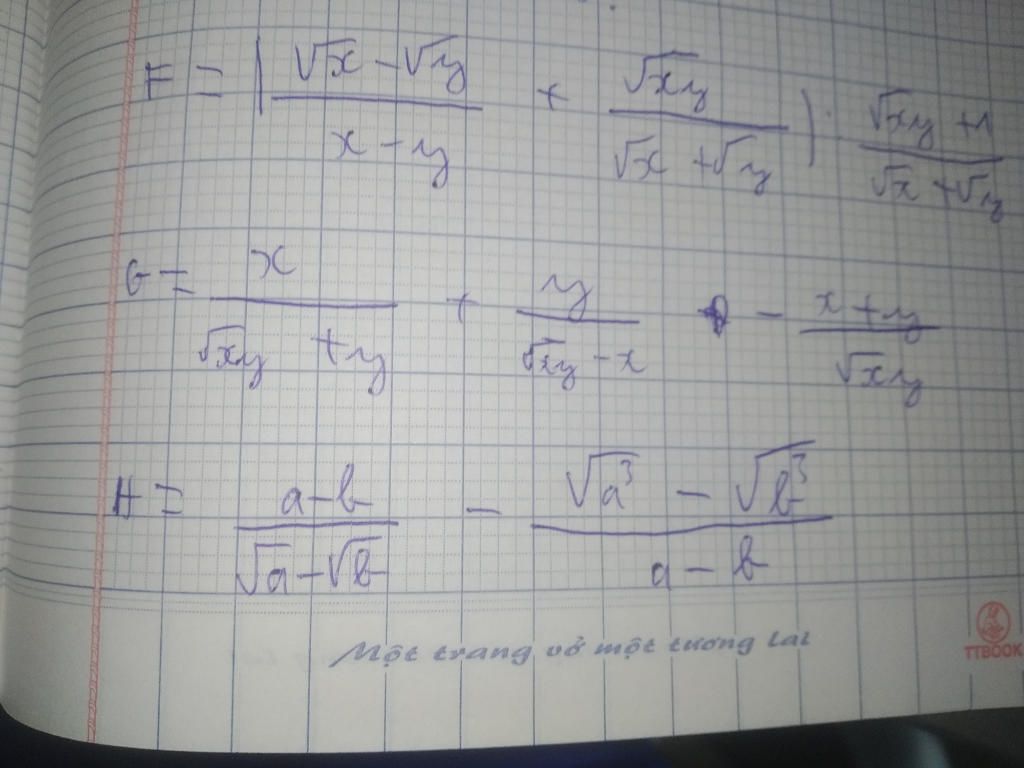 F = (\frac{\sqrt{x} - \sqrt{y}}{x - y} + \frac{\sqrt{xy}}{\sqrt{x} + \sqrt{y}}) : \frac{\sqrt{xy} + 1}{\sqrt{x} + \sqrt{y}}
G = \frac{x}{\sqrt{xy} + y} + \frac{y}{\sqrt{xy} - x} - \frac{x + y}{\sqrt{xy}}
H = \frac{a - b}{\sqrt{a} - \sqrt{b}} - \frac{\sqrt{a^3} - \sqrt{b^3}}{a - b}
Một trang vở một tương lai
TTBOOK